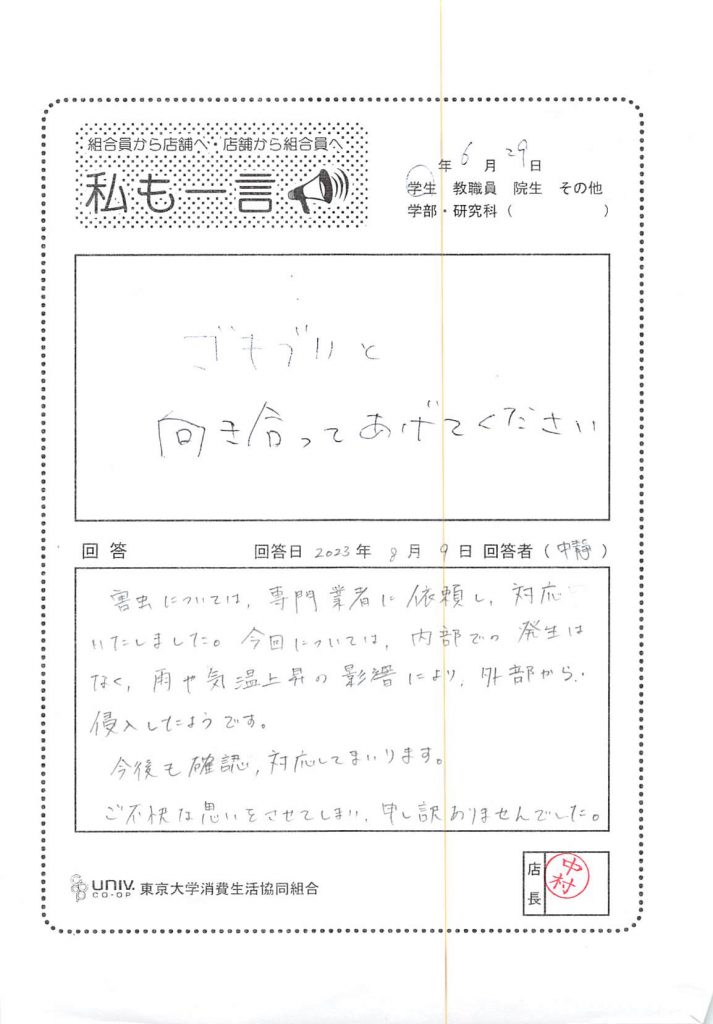 組合員から店舗へ・店舗から組合員へ
私も一言
年 6 月 29 日
学生 教職員 院生 その他
学部・研究科( )
ゴキブリと
向き合ってあげてください
回答 回答日 2023 年 8 月 9 日 回答者(中静)
害虫については、専門業者に依頼し、対応
いたしました。今回については、内部での発生は
なく、雨や気温上昇の影響により、外部から
侵入したようです。
今後も確認、対応してまいります。
ご不快な思いをさせてしまい、申し訳ありませんでした。
UNIV. CO-OP 東京大学消費生活協同組合
店長 中村